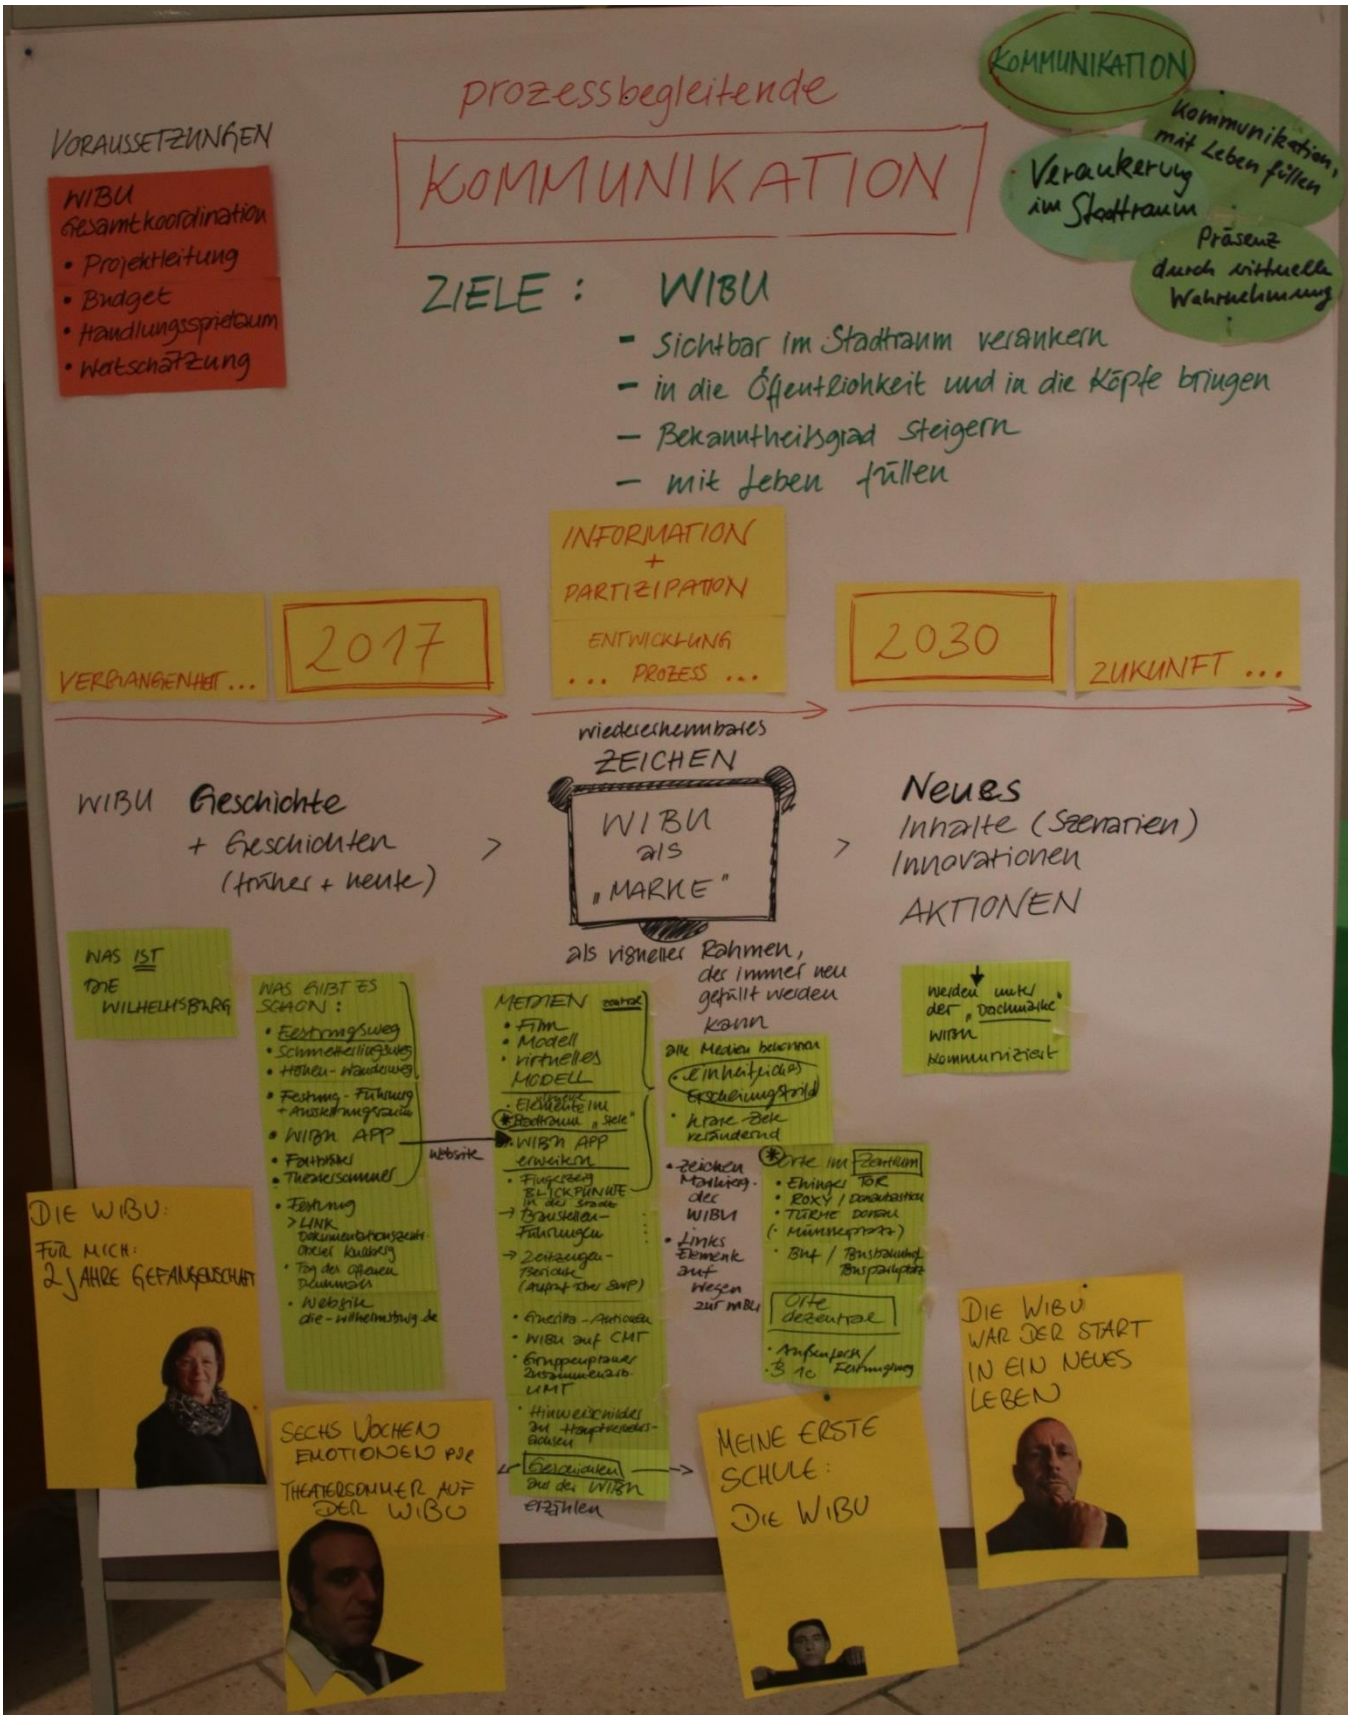 prozessbegleitende
KOMMUNIKATION
KOMMUNIKATION
Kommunikation,
mit Leben füllen
Verankerung
im Stadtraum
Präsenz
durch virtuelle
Wahrnehmung
VORAUSSETZUNGEN
WIBU
Gesamtkoordination
• Projektleitung
• Budget
• Handlungsspielraum
• Wertschätzung
ZIELE : WIBU
- Sichtbar im Stadtraum verankern
- in die Öffentlichkeit und in die Köpfe bringen
- Bekanntheitsgrad steigern
- mit Leben füllen
VERGANGENHEIT ...
2017
INFORMATION
+
PARTIZIPATION
ENTWICKLUNG
... PROZESS ...
2030
ZUKUNFT ...
WIBU Geschichte
+ Geschichten
(früher + heute)
>
wiedererkennbares
ZEICHEN
WIBU
als
„MARKE"
als visueller Rahmen,
der immer neu
gefüllt werden
kann
>
Neues
Inhalte (Szenarien)
Innovationen
AKTIONEN
WAS IST
DIE
WILHELMSBURG
WAS GIBT ES
SCHON:
• Festungsweg
• Schmetterlingsweg
• Höhen-Wanderweg
• Festung-Führung
+ Ausstellungsraum
• WIBU APP
• Faltblätter
• Theatersommer
• Festung
> LINK
Dokumentationszentr.
Oberer Kuhberg
• Tag des offenen
Denkmals
• Website
die-wilhelmsburg.de
Website
MEDIEN zentral
• Film
• Modell
• virtuelles
MODELL
• Elemente im
Stadtraum „Stele"
• WIBU APP
erweitern
• Fingerzeig
BLICKPUNKTE
in der Stadt
→ Baustellen-
Führungen
→ Zeitzeugen-
Berichte
(Aufruf über SWP)
• Guerilla-Aktionen
• WIBU auf CMT
• Gruppenplaner
Zusammenarb.
UMT
• Hinweisschilder
an Hauptverkehrs-
achsen
Geschichten
aus der WIBU
erzählen
alle Medien bekommen
• einheitliches
Erscheinungsbild
• klare Ziele
verändernd
• Zeichen
Markierg.
der
WIBU
• Links
Elemente
auf
Wegen
zur WIBU
Orte im Zentrum
• Ehinger TOR
• ROXY / Donaubastion
• TÜRME Donau
(• Münsterplatz)
• Bhf / Busbahnhof
Busparkplatz
Orte
dezentral
• Außenfort /
• B 10 Festungsweg
werden unter
der „Dachmarke"
WIBU
kommuniziert
DIE WIBU:
FÜR MICH:
2 JAHRE GEFANGENSCHAFT
SECHS WOCHEN
EMOTIONEN PUR
THEATERSOMMER AUF
DER WIBU
MEINE ERSTE
SCHULE:
DIE WIBU
DIE WIBU
WAR DER START
IN EIN NEUES
LEBEN